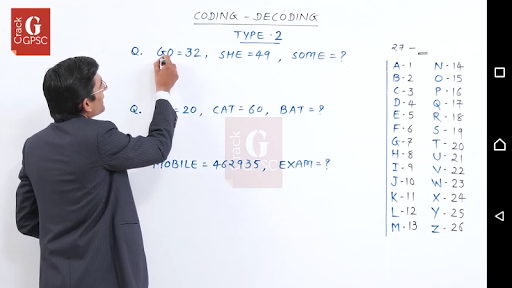 Crack
G
GPSC
CODING - DECODING
TYPE - 2
Q. GO = 32, SHE = 49, SOME = ?
Q. = 20, CAT = 60, BAT = ?
MOBILE = 462935, EXAM = ?
Crack
G
GPSC
27 -
A - 1 N - 14
B - 2 O - 15
C - 3 P - 16
D - 4 Q - 17
E - 5 R - 18
F - 6 S - 19
G - 7 T - 20
H - 8 U - 21
I - 9 V - 22
J - 10 W - 23
K - 11 X - 24
L - 12 Y - 25
M - 13 Z - 26